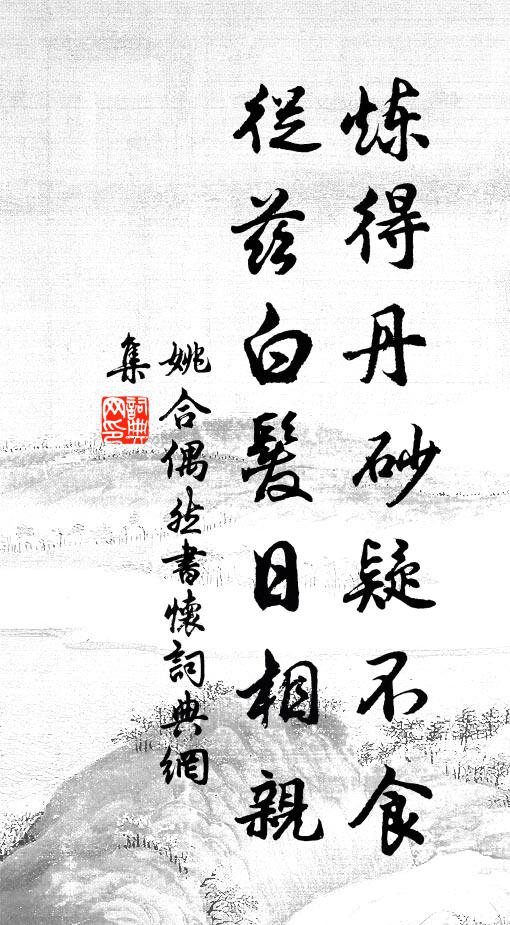 炼得丹砂疑不食
從茲白髮日相親
姚合偶然書懷詞典網
集
詞典网印